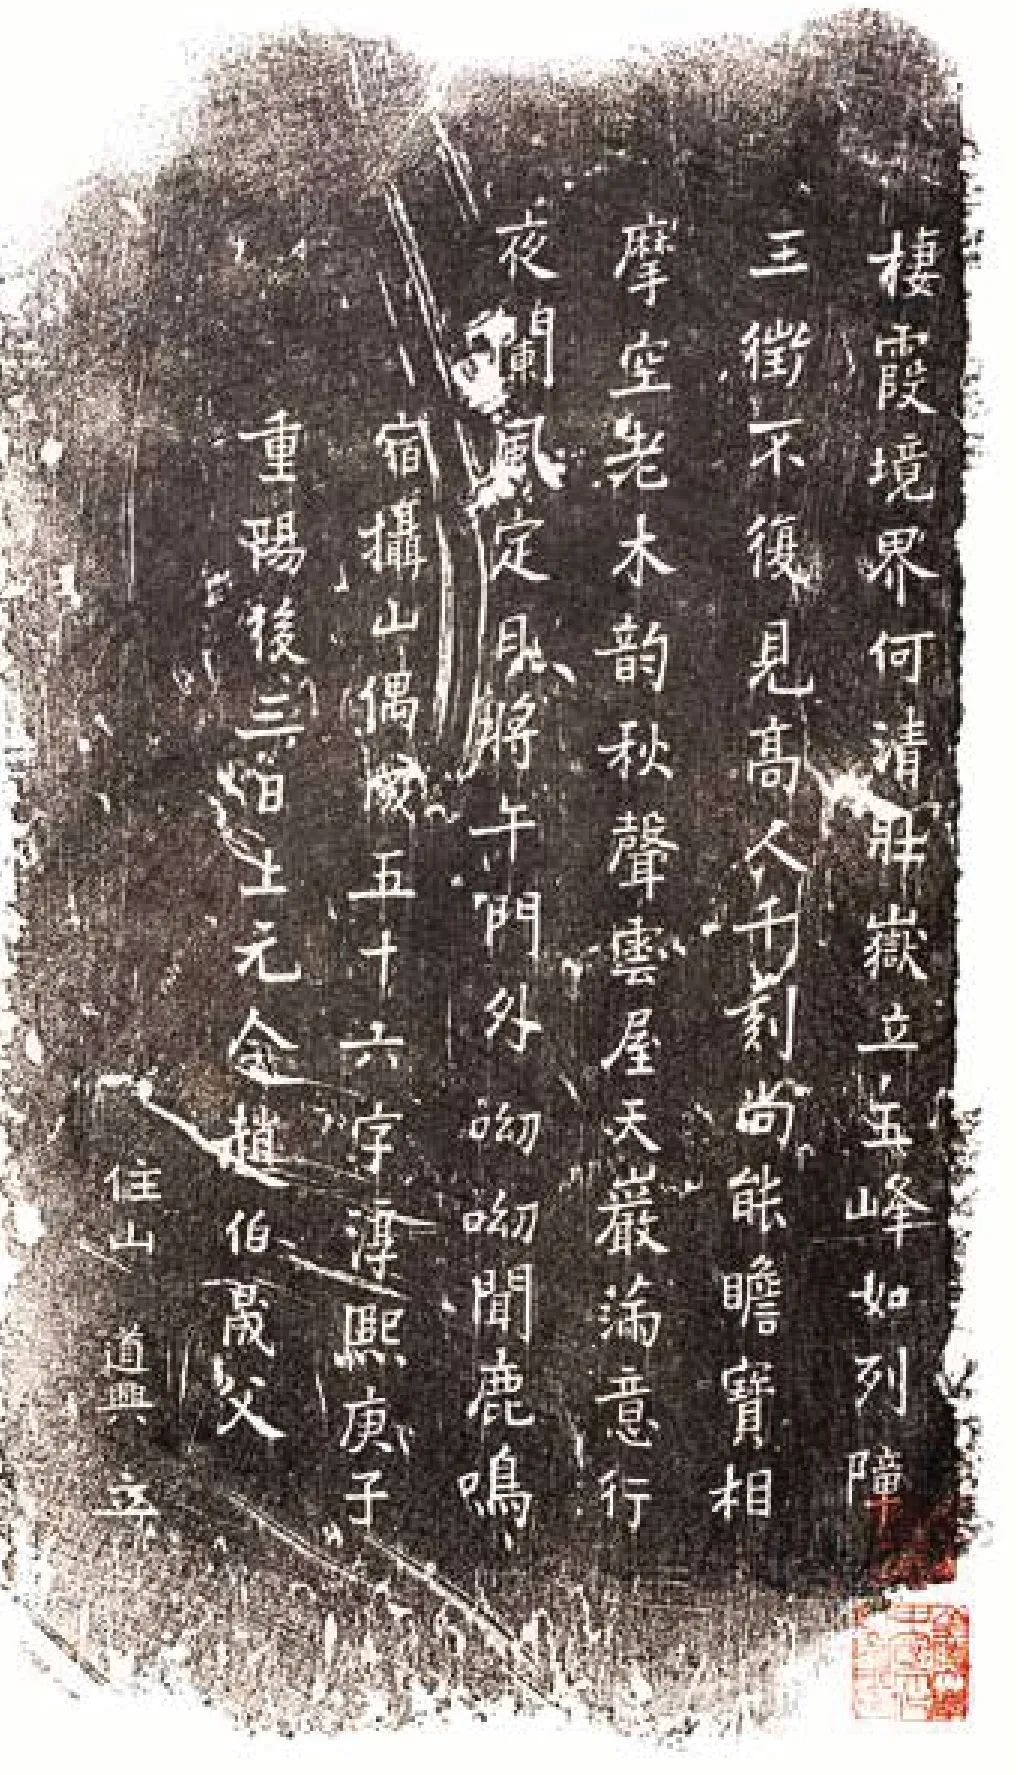 棲霞境界何清壯嶽立五峰如列障
三徵不復見高人千刻尚能瞻寶相
摩空老木韵秋聲雲屋天巖滿意行
夜闌風定月將午門外呦呦聞鹿鳴
宿攝山偶成五十六字淳熙庚子
重陽後三日土元令趙伯晟父
住山 道興 立